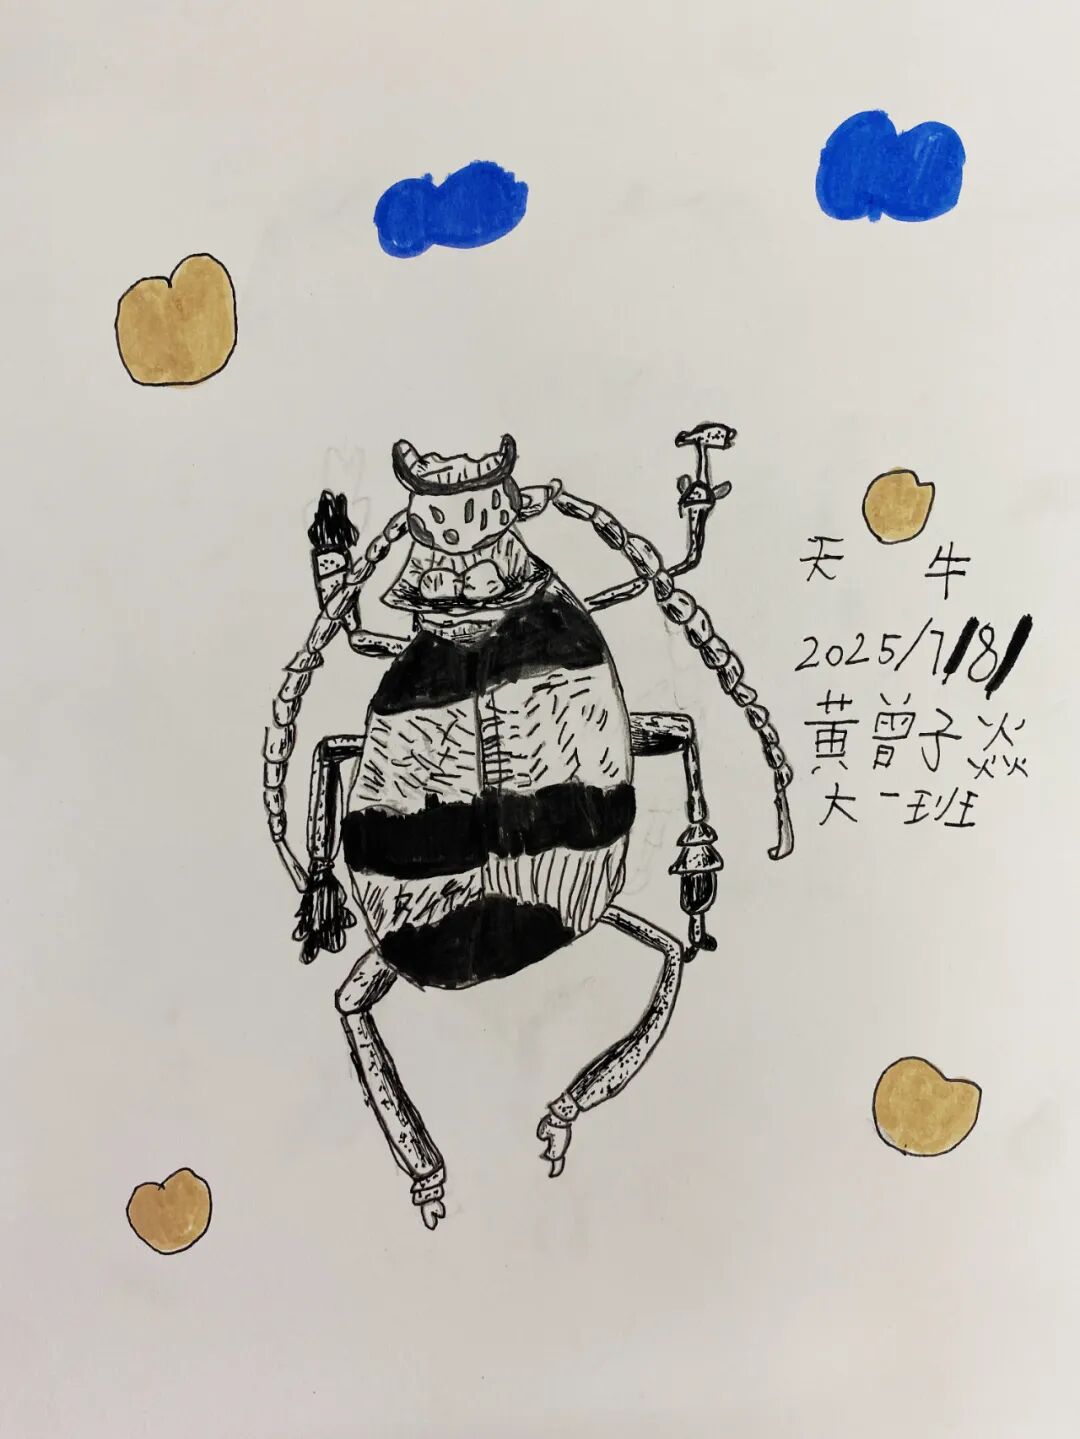 天 牛
2025/7/8/
黄曾子焱
大一班